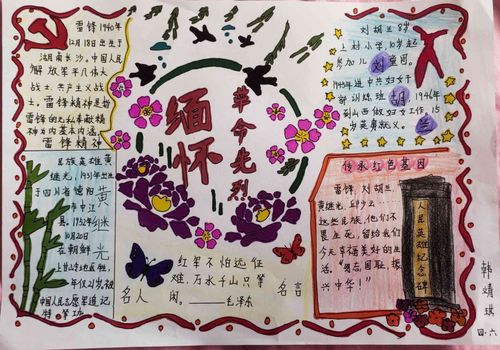 雷锋1940年
12月18日出生于
湖南长沙,中国人民
解放军平凡伟大
战士,共产主义战
士。雷锋精神是指
雷锋的无私奉献精
神为内基本内涵。
雷锋精神
缅怀
革命先烈
刘胡兰8岁
上村小学,10岁起
参加儿童团。
刘
1945年进中共妇女干
部训练班
胡
1946年
到山西做妇女工作,15
岁英勇就义。
兰
民族英雄黄
继光,1931年出生
于四川省德阳
市中江
县。1952年
10月20日
在朝鲜
上甘岭战役牺牲,
年仅21岁被
中国人民志愿军追记
特等功
黄继光
名人
红军不怕远征
难,万水千山只等
闲。——毛泽东
名言
传承红色基因
雷锋,刘胡兰
黄继光,邱少云
这些民族,他们不
畏生死,留给我们
今天幸福美好的生
活,“勿忘国耻,振
兴中华!”
人民英雄纪念碑
韩婧琪
四.六